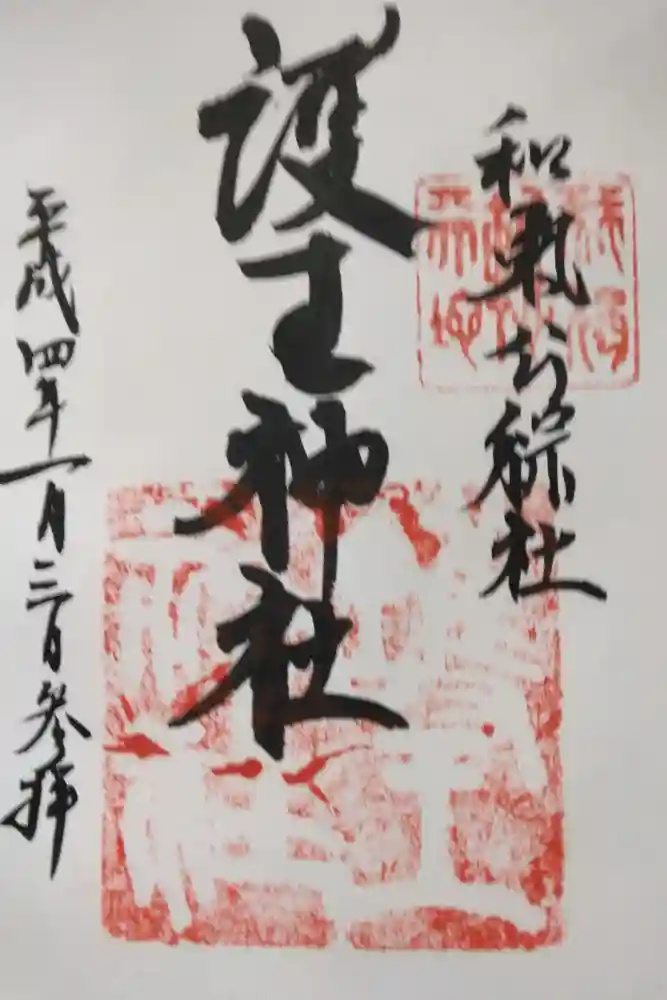 和氣公綜社
護王神社
平成四年一月三日参拝